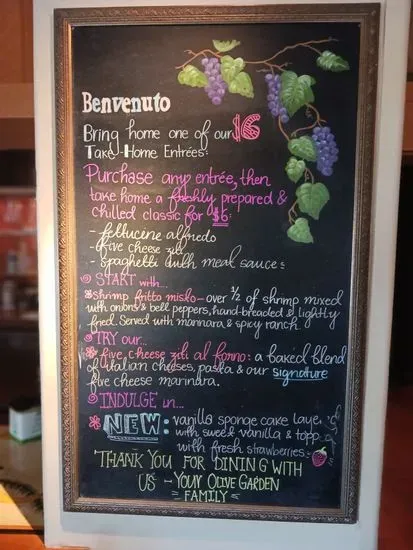 Benvenuto
Bring home one of our $6
Take-Home Entrées:
Purchase any entrée, then
take home a freshly prepared &
chilled classic for $6:
- fettucine alfredo
- five cheese ziti
- spaghetti with meat sauce:
START with...
shrimp fritto misto - over 1/2 of shrimp mixed
with onions & bell peppers, hand-breaded & lightly
fried. Served with marinara & spicy ranch
TRY our...
five, cheese ziti al forno: a baked blend
of italian cheeses, pasta & our signature
five cheese marinara.
INDULGE in...
NEW: vanilla sponge cake laye
with sweet vanilla & topp
with fresh strawberries.
THANK YOU FOR DINING WITH
US - YOUR OLIVE GARDEN
= FAMILY =